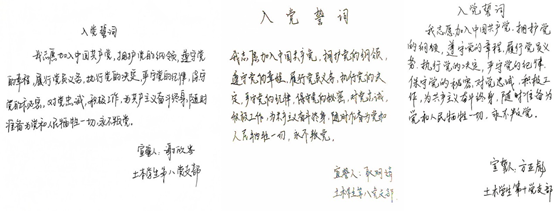 入党誓词
我志愿加入中国共产党,拥护党的纲领,遵守党
的章程,履行党员义务,执行党的决定,严守党的纪律,保守
党的秘密,对党忠诚,积极工作,为共产主义奋斗终身,随时
准备为党和人民牺牲一切,永不叛党。
宣誓人:
土木学生第八党支部
入党誓词
我志愿加入中国共产党,拥护党的纲领,
遵守党的章程,履行党员义务,执行党的决
定,严守党的纪律,保守党的秘密,对党忠诚,
积极工作,为共产主义奋斗终身,随时准备为党和
人民牺牲一切,永不叛党。
宣誓人:
土木学生第八党支部
入党誓词
我志愿加入中国共产党,拥护党
的纲领,遵守党的章程,履行党员义
务,执行党的决定,严守党的纪律,
保守党的秘密,对党忠诚,积极工
作,为共产主义奋斗终身,随时准备为
党和人民牺牲一切,永不叛党。
宣誓人:方亚彪
土木学生第十党支部